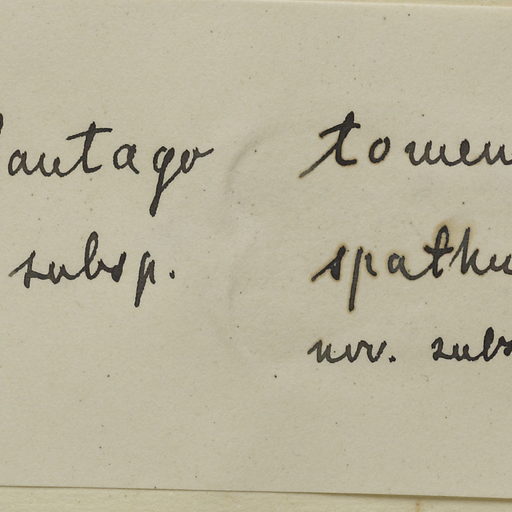 lantago tomen
subsp. spathu
nov. subs